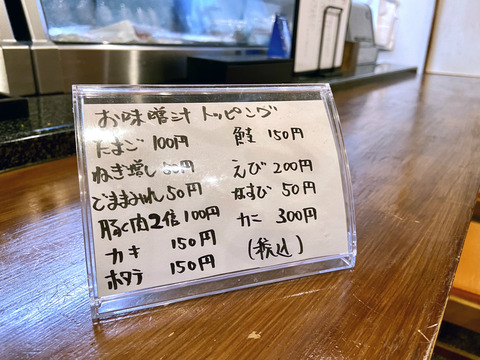 お味噌汁トッピング
たまご 100円
ねぎ増し 50円
ごままみれ 50円
豚肉2倍 100円
カキ 150円
ホタテ 150円
鮭 150円
えび 200円
なすび 50円
カニ 300円
(税込)